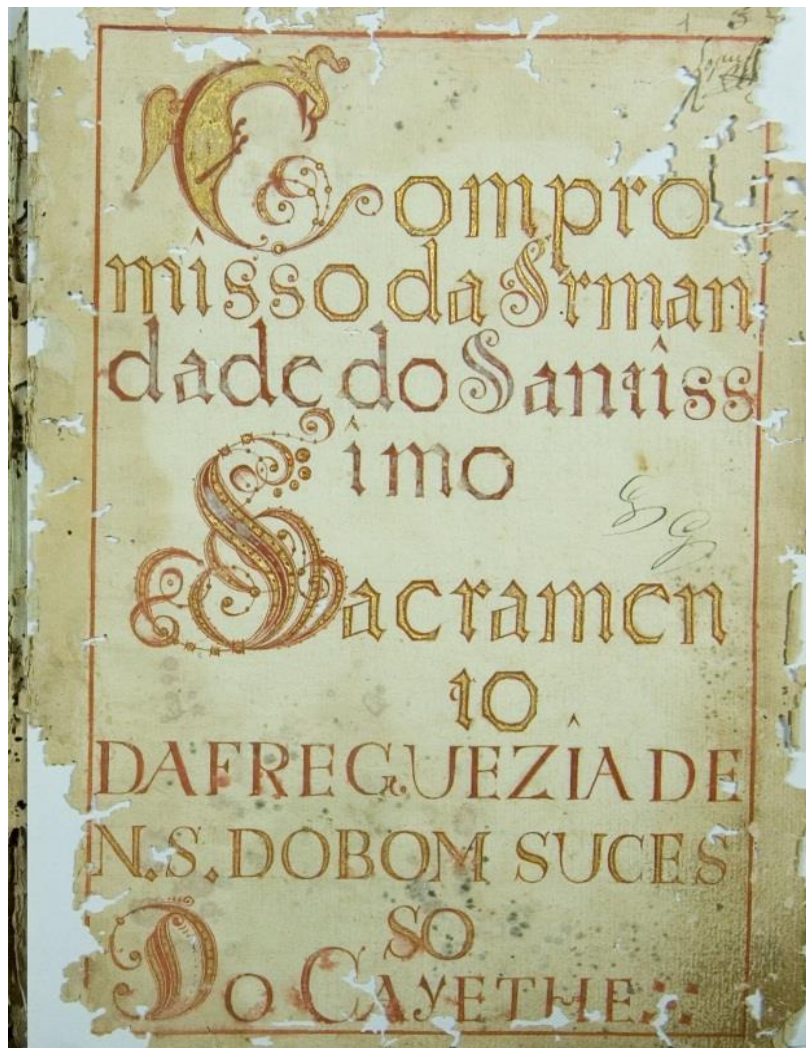 Compro
misso da Irman
dade do Santiss
imo
Sacramen
to
DAFREGUEZIA DE
N.S. DOBOM SUCES
SO
Do CAyETHE